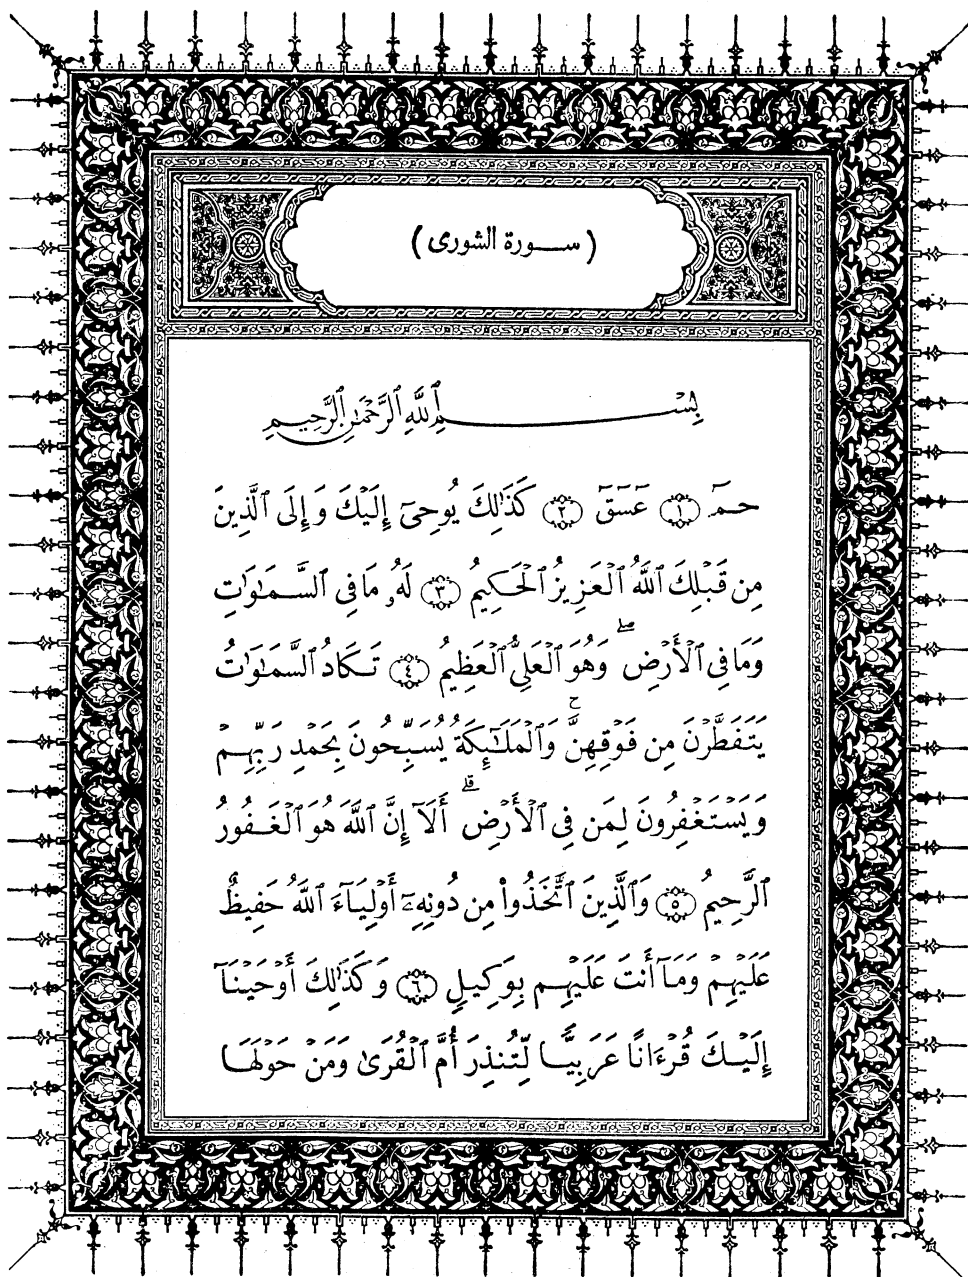 ( ســـورة الشورى )
بِسْـــــــــمِ ٱللَّهِ ٱلرَّحْمَٰنِ ٱلرَّحِيمِ
حمٓ ١ عٓسٓقٓ ٢ كَذَٰلِكَ يُوحِىٓ إِلَيْكَ وَإِلَى ٱلَّذِينَ
مِن قَبْلِكَ ٱللَّهُ ٱلْعَزِيزُ ٱلْحَكِيمُ ٣ لَهُۥ مَا فِى ٱلسَّمَٰوَٰتِ
وَمَا فِى ٱلْأَرْضِ ۖ وَهُوَ ٱلْعَلِىُّ ٱلْعَظِيمُ ٤ تَكَادُ ٱلسَّمَٰوَٰتُ
يَتَفَطَّرْنَ مِن فَوْقِهِنَّ ۚ وَٱلْمَلَٰٓئِكَةُ يُسَبِّحُونَ بِحَمْدِ رَبِّهِمْ
وَيَسْتَغْفِرُونَ لِمَن فِى ٱلْأَرْضِ ۗ أَلَآ إِنَّ ٱللَّهَ هُوَ ٱلْغَفُورُ
ٱلرَّحِيمُ ٥ وَٱلَّذِينَ ٱتَّخَذُوا۟ مِن دُونِهِۦٓ أَوْلِيَآءَ ٱللَّهُ حَفِيظٌ
عَلَيْهِمْ وَمَآ أَنتَ عَلَيْهِم بِوَكِيلٍ ٦ وَكَذَٰلِكَ أَوْحَيْنَآ
إِلَيْكَ قُرْءَانًا عَرَبِيًّا لِّتُنذِرَ أُمَّ ٱلْقُرَىٰ وَمَنْ حَوْلَهَا